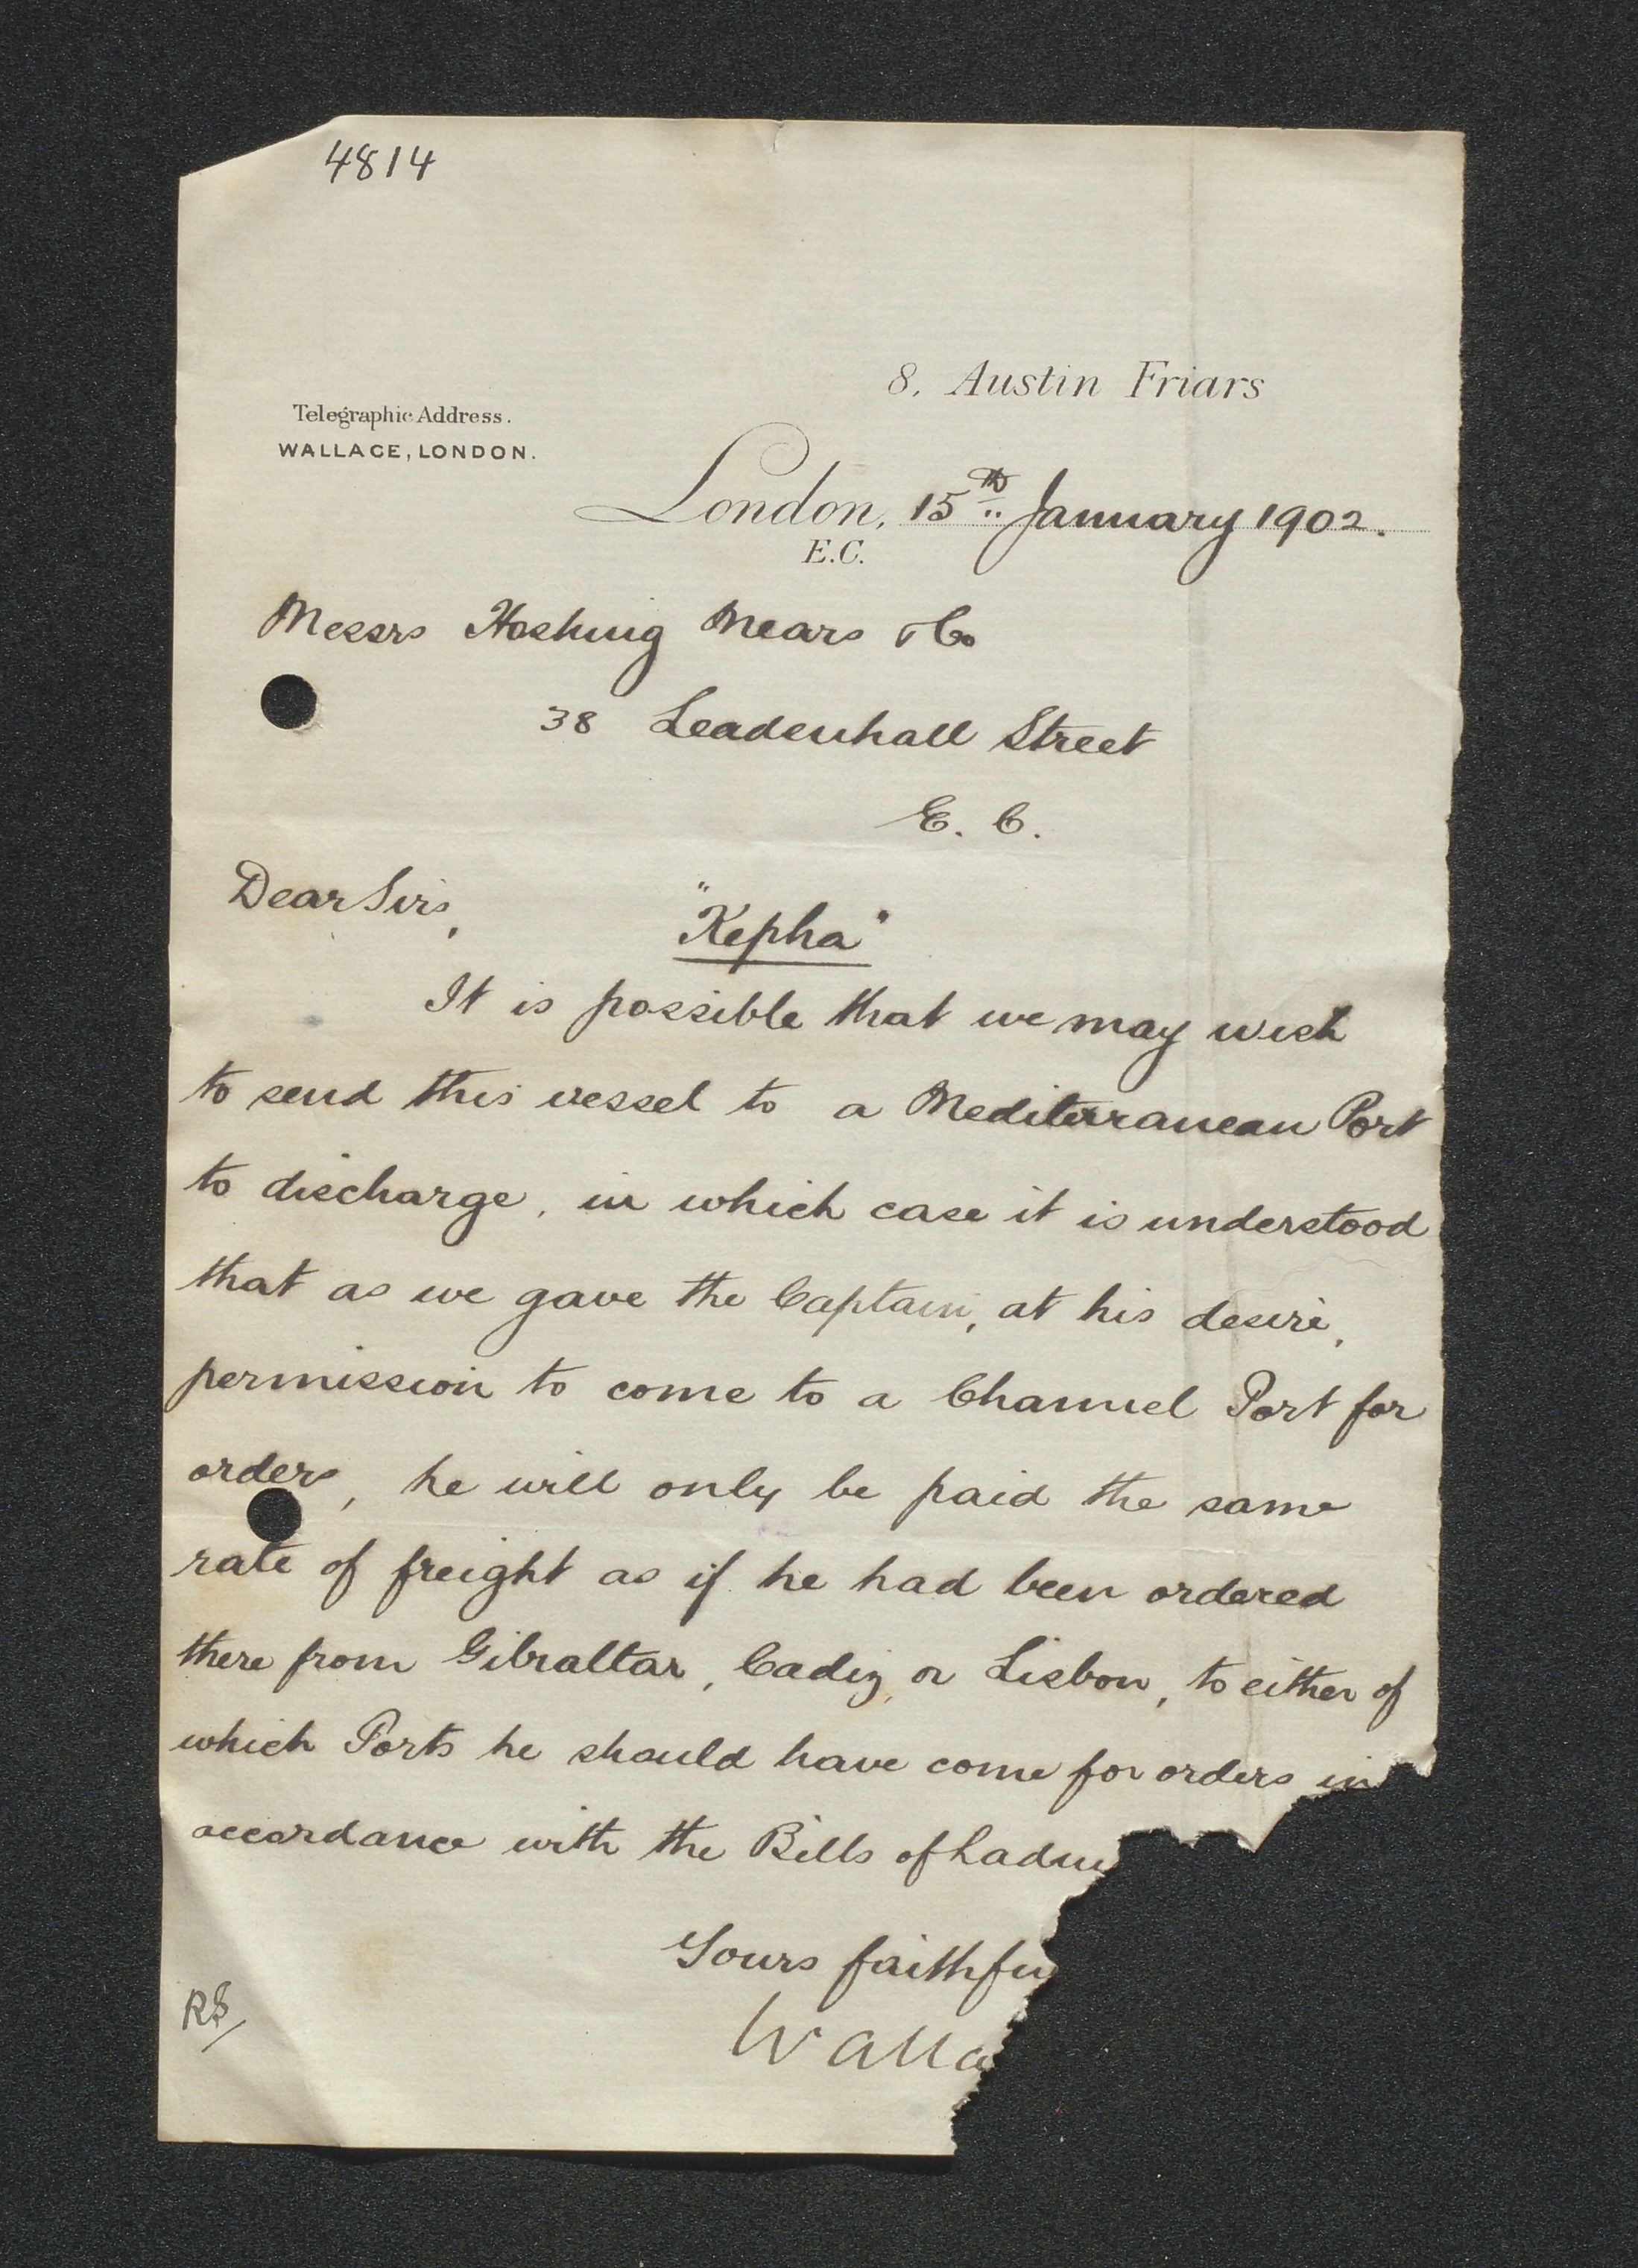 4814
8, Austin Friars
Telegraphic Address.
WALLACE, LONDON.
London, 15th January 1902.
E.C.
Messrs Hosking Mears & Co
38 Leadenhall Street
E. C.
Dear Sirs,
"Kepha"
It is possible that we may wish
to send this vessel to a Mediterranean Port
to discharge, in which case it is understood
that as we gave the Captain, at his desire,
permission to come to a Channel Port for
orders, he will only be paid the same
rate of freight as if he had been ordered
there from Gibraltar, Cadiz, or Lisbon, to either of
which Ports he should have come for orders in
accordance with the Bills of Ladin
Yours faithfu
Walla
RS